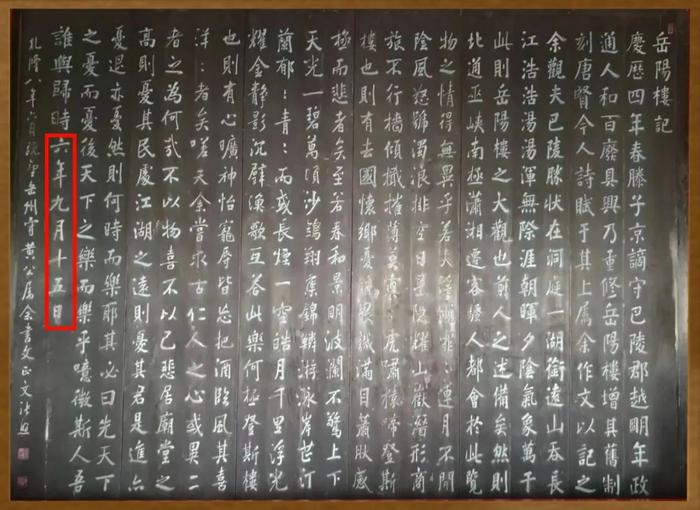 岳陽樓記
慶歷四年春滕子京謫守巴陵郡越明年政
通人和百廢具興乃重修岳陽樓增其舊制
刻唐賢今人詩賦于其上屬余作文以記之
余觀夫巴陵勝狀在洞庭一湖銜遠山吞長
江浩浩湯湯渾無際涯朝暉夕陰氣象萬千
此則岳陽樓之大觀也前人之述備矣然則
北通巫峽南極瀟湘遷客騷人都會於此覽
物之情得無異乎若夫霪雨霏霏連月不開
陰風怒號濁浪排空日星隱耀山嶽潛形商
旅不行檣傾檝摧薄暮冥冥虎嘯猿啼登斯
樓也則有去國懷鄉憂讒畏譏滿目蕭然感
極而悲者矣至若春和景明波瀾不驚上下
天光一碧萬頃沙鷗翔集錦鱗游泳岸芷汀
蘭郁:青:而或長煙一空皓月千里浮光
耀金靜影沉璧漁歌互答此樂何極登斯樓
也則有心曠神怡寵辱皆忘把酒臨風其喜
洋:者矣嗟夫余嘗求古仁人之心或異二
者之為何哉不以物喜不以己悲居廟堂之
高則憂其民處江湖之遠則憂其君是進亦
憂退亦憂然則何時而樂耶其必曰先天下
之憂而憂後天下之樂而樂乎噫微斯人吾
誰與歸時六年九月十五日
乾隆八年六月既望岳州守黃公屬余書文正文張照